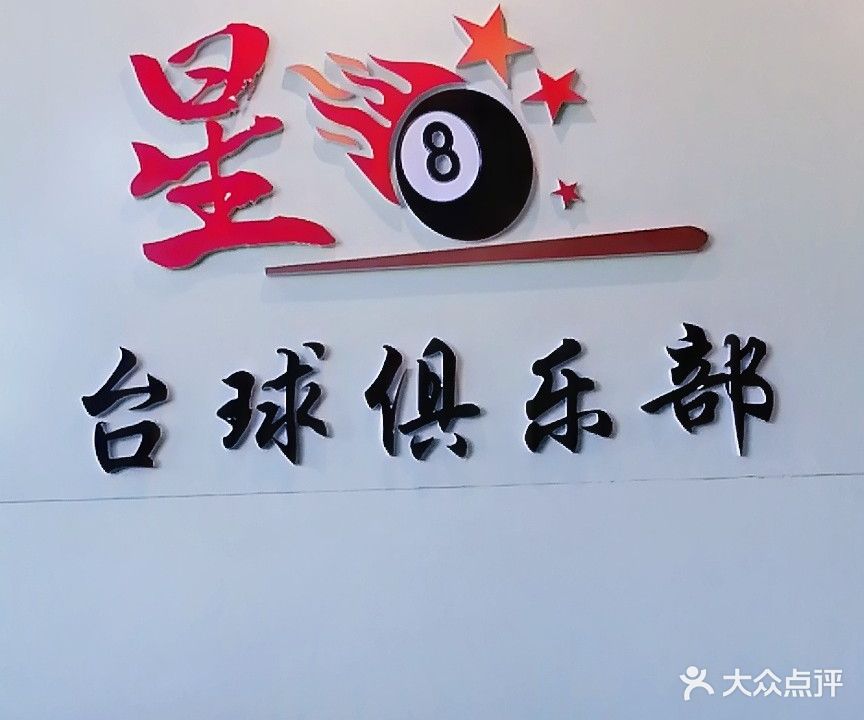 星8
台球俱乐部
大众点评